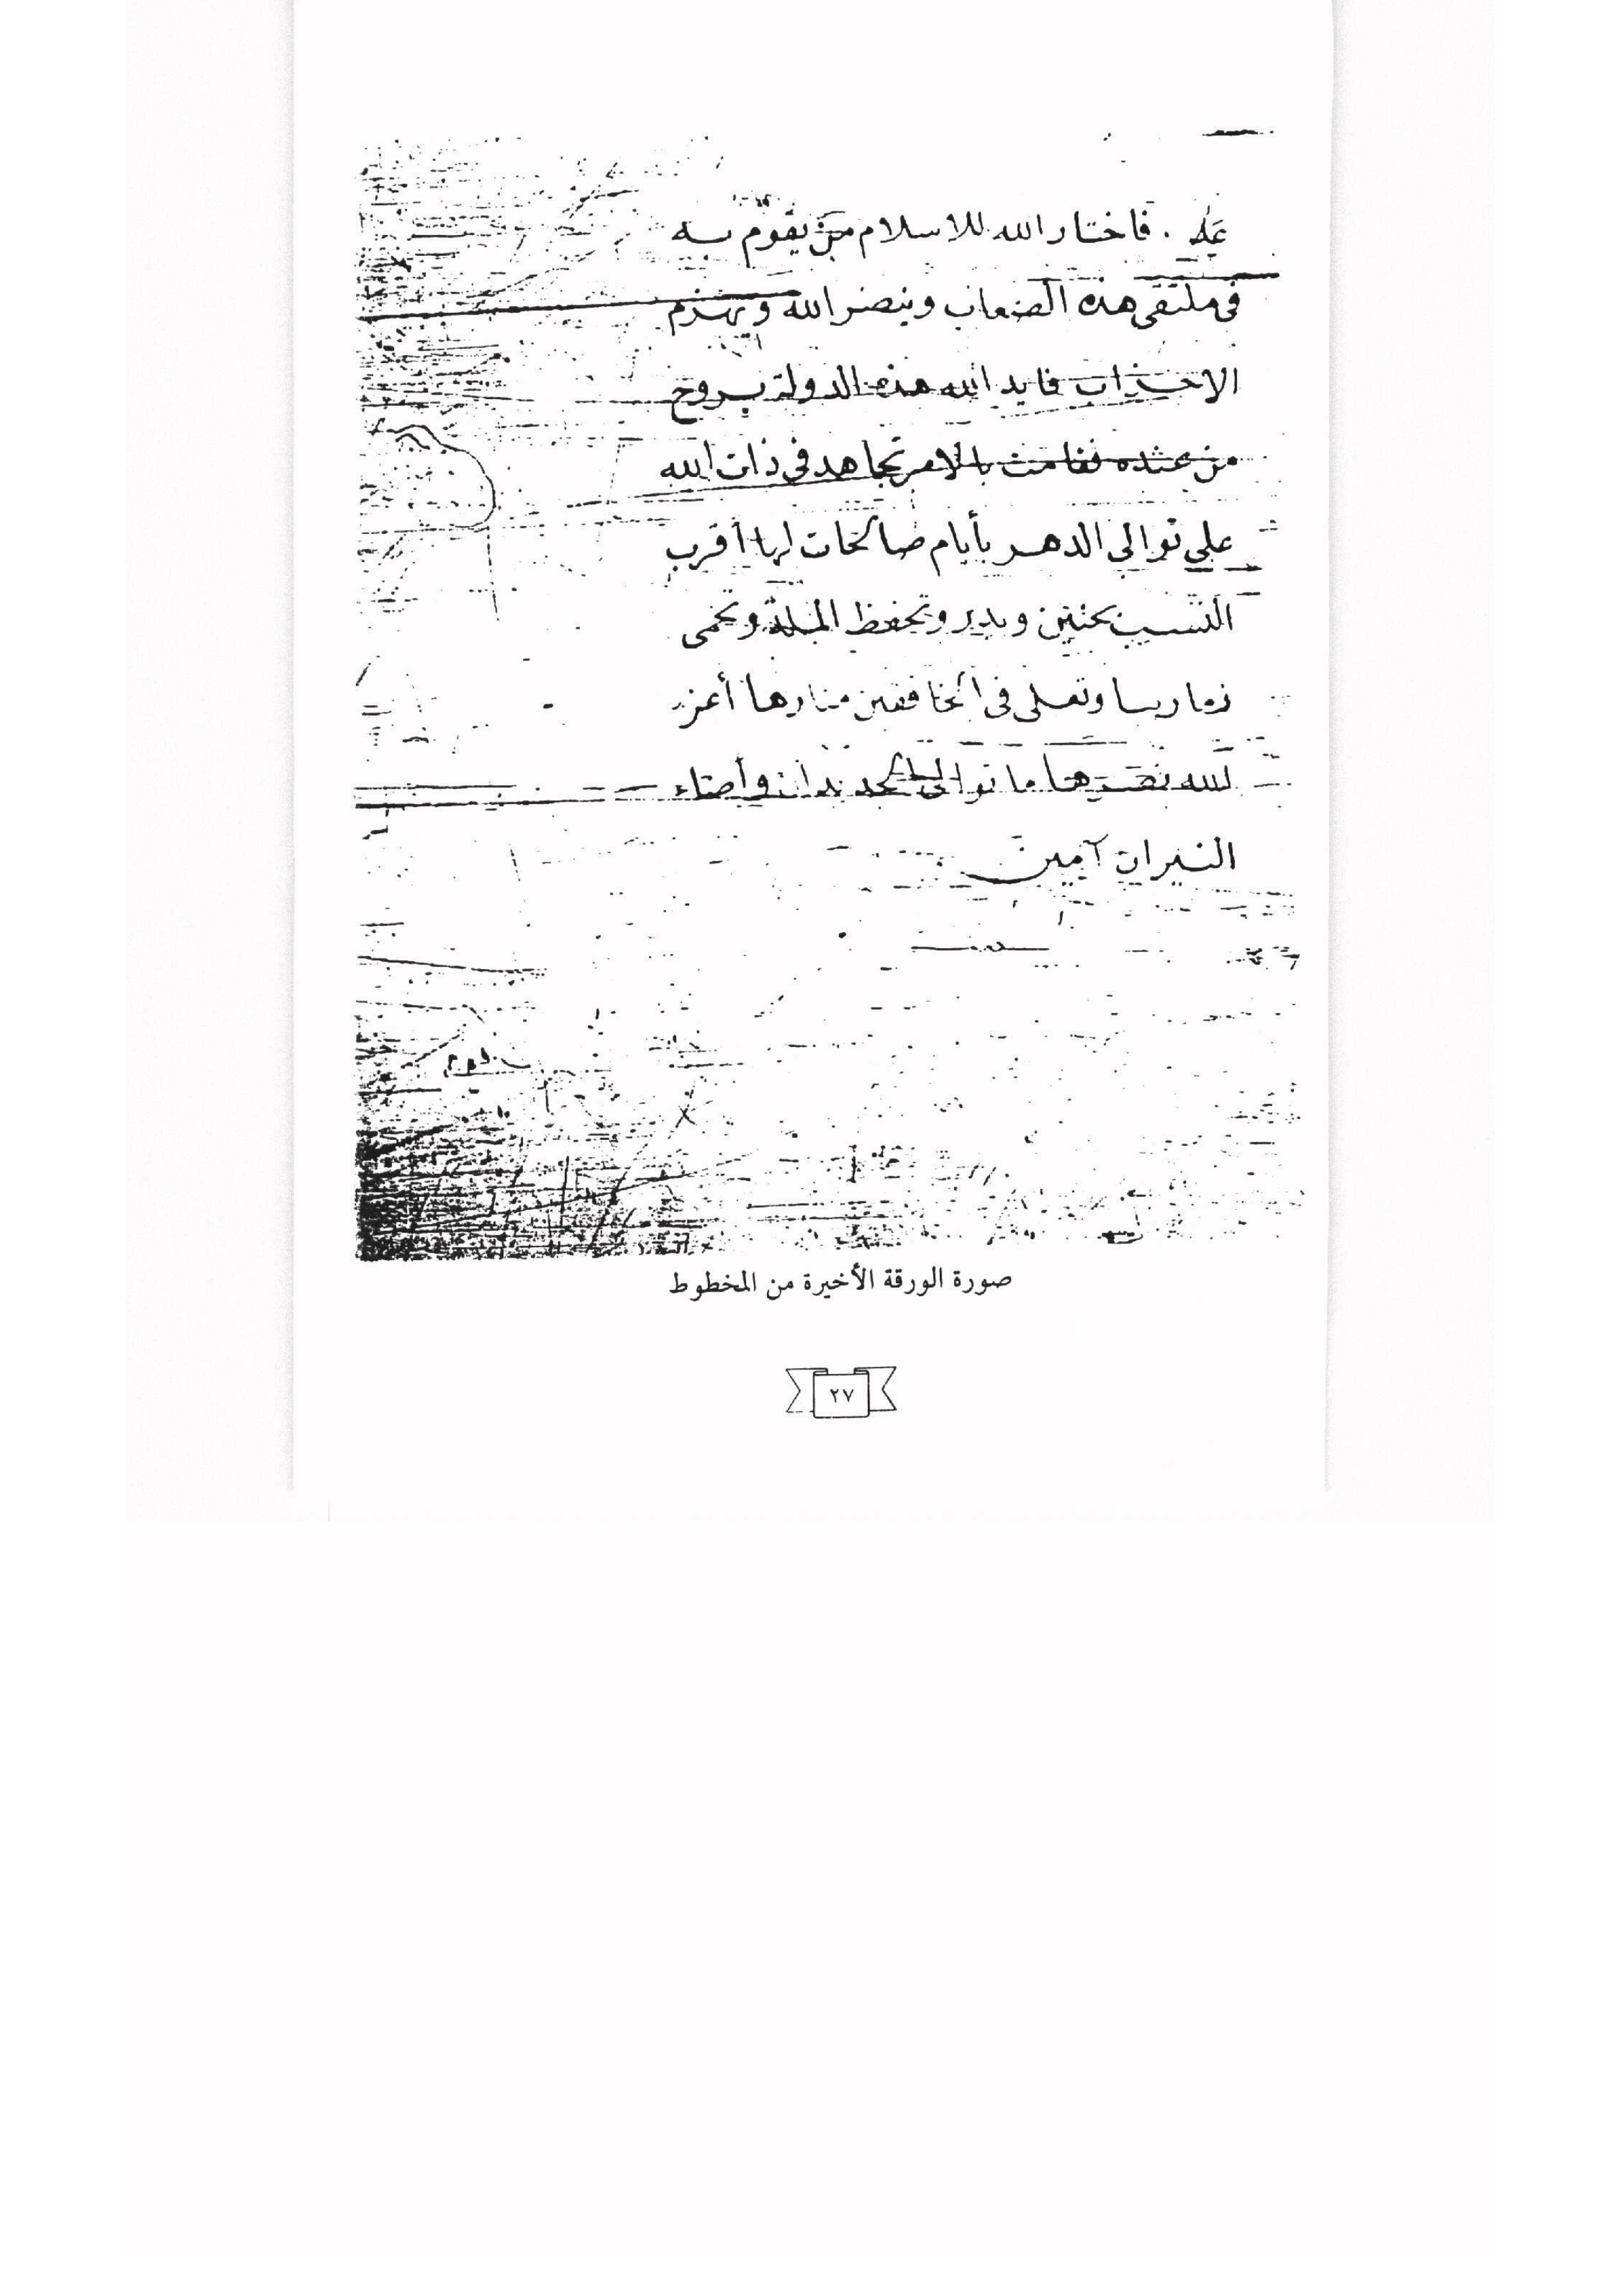 فاختار الله للاسلام من يقوم به
فى ملتقى هذه الصعاب وينصر الله ويهزم
الاحزاب فايد الله هذه الدولة بروح
من عنده فقامت بالامر تجاهد فى ذات الله
على توالى الدهر بأيام صالحات لها أقرب
النسب بحنين وبدر وتحفظ الملة وتحمى
ذمارها وتعلى فى الخافقين منارها أعز
الله نصرها ما توالى الجديدان وأضاء
النيران آمين
صورة الورقة الأخيرة من المخطوط
٢٧